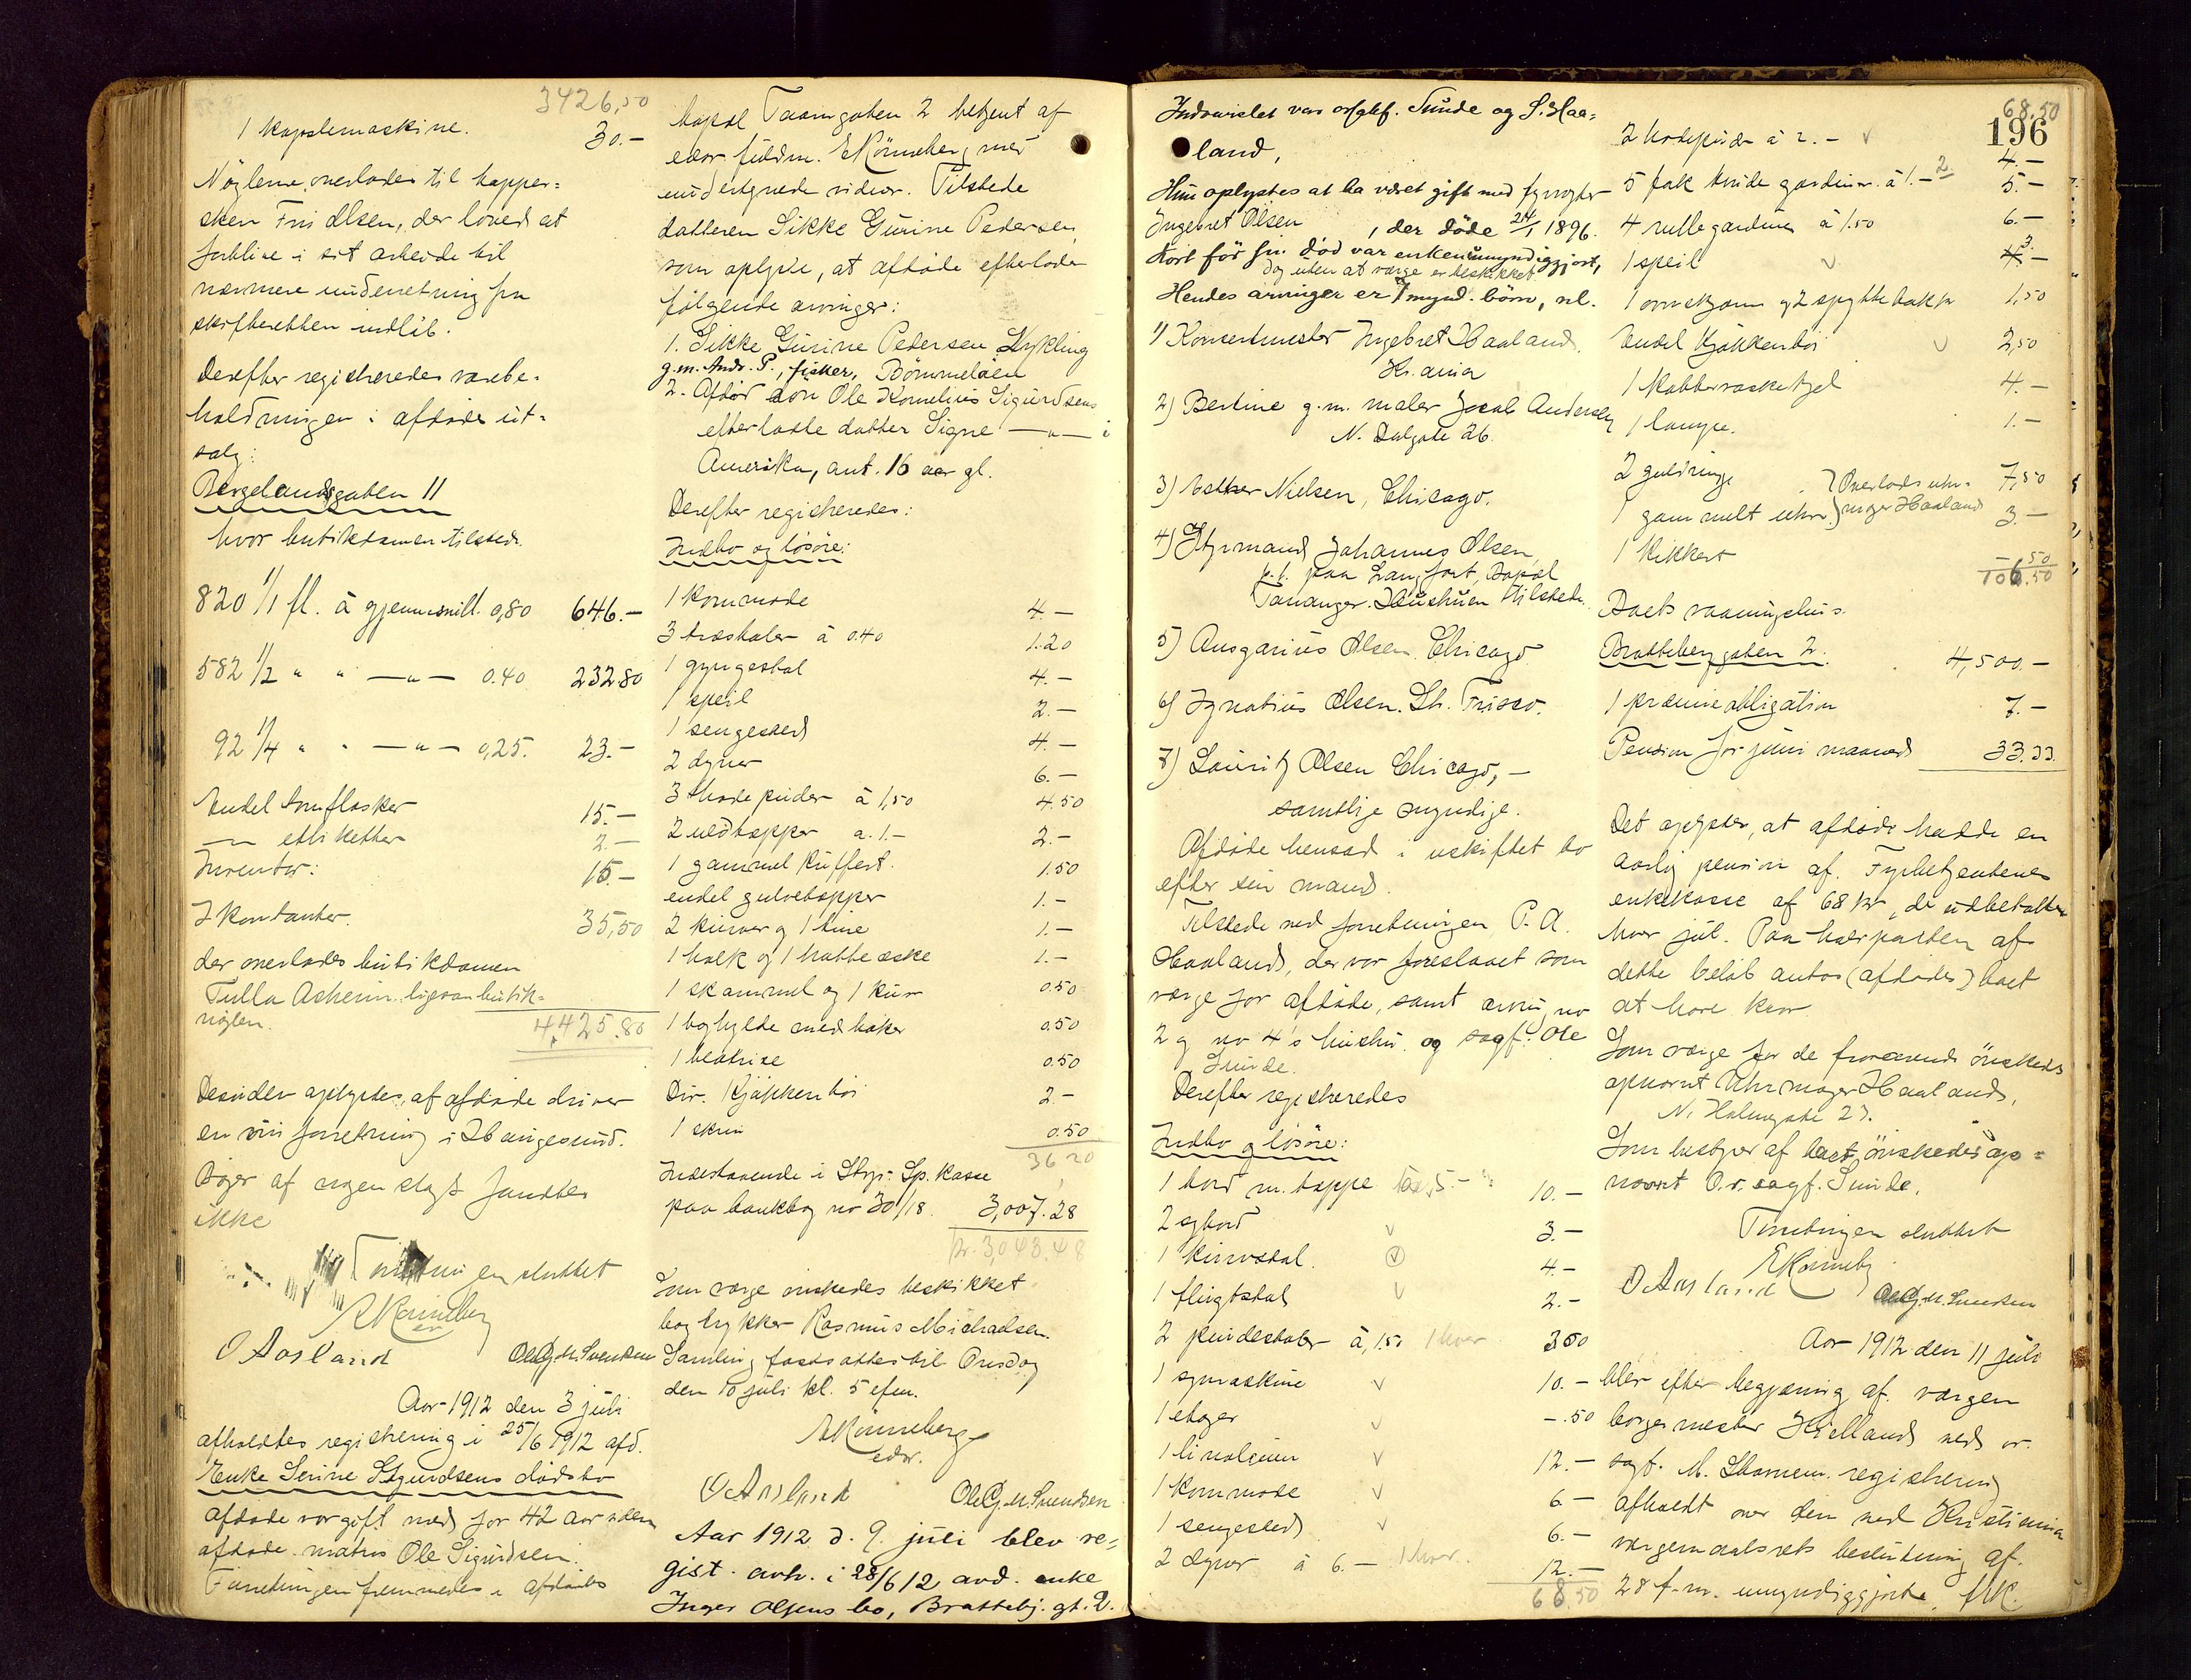 3426,50
1 kapslemaskine. 30.-
Nøglerne overlades til kapper-
sken Frk Olsen, der lovede at
forblive i sit arbeide til
nærmere underretning fra
skifteretten indløb.
Derefter registreredes varebe-
holdningen i afdødes ut-
salg:
Bergelandsgaten 11
hvor butikdamen tilstede.
820 1/1 fl. à gjennemsnitt. 0,80 646.-
582 1/2 " " —"— 0.40 232.80
92 1/4 " " —"— 0,25. 23.-
Endel tomflasker 15.-
—"— etiketter 2.-
Inventar: 15.-
I kontanter. 35,50
der overlades butikdamen
Tulla Asheim ligesom butik-
nøglen.
4,425.80
Desuden oplystes, at afdøde driver
en vinforretning i Haugesund.
Bøger af nogen slags fandtes
ikke
Forretningen sluttet
E Rønneberg
O Aasland Ole G. M. Svendsen
Aar 1912 den 3 juli
afholdtes registrering i 25/6 1912 afd.
Enke Serine Sigurdsens dødsbo
Afdøde var gift med for 42 aar siden
afdøde matros Ole Sigurdsen.
Forretningen fremmedes i afdødes
bopæl Taarngaten 2 betjent af
edsv. fuldm. E Rønneberg med
undertegnede vidner. Tilstede
datteren Sikke Gurine Pedersen,
som oplyste, at afdøde efterlader
følgende arvinger:
1. Sikke Gurine Pedersen Lykling
g.m. Andr. P., fisker, Bømmeløen
2. Afdød søn Ole Kornelius Sigurdsens
efterladte datter Signe —"— i
Amerika, ant. 16 aar gl.
Derefter registreredes:
Indbo og løsøre:
1 kommode 4.-
3 træstoler à 0.40 1.20
1 gyngestol 4.-
1 speil 2.-
1 sengested 4.-
2 dyner 6.-
3 hodeputer à 1,50 4.50
2 uldtæpper a. 1.- 2.-
1 gammel kuffert. 1.50
endel gulvtæpper 1.-
2 kurver og 1 tine 1.-
1 balk og 1 hatteæske 1.-
1 skammel og 1 kurv 0.50
1 boghylde med bøker 0.50
1 beatrice 0.50
Div. Kjøkkentøi 2.-
1 skrin 0.50
36 20
Indestaaende i Stvgr. Sp. kasse
paa bankbog no 30/18. 3,007.28
kr. 3,043.48
Som værge ønskedes beskikket
bogtrykker Rasmus Michaelsen.
Samling fastsattes til Onsdag
den 10 juli kl. 5 efm.
E Rønneberg
edsv.
O Aasland Ole G. M. Svendsen
Aar 1912 d. 9. juli blev re-
gist. avh. i 28/6 12 avd. enke
Inger Olsens bo, Brattebj. gt. 2.
196
Indvarslet var o/sagf. Sunde og S. Haa-
land,
Hun oplystes at ha været gift med fyrvogter
Ingebret Olsen, der døde 24/1 1896.
Kort før sin død var enken umyndiggjort,
dog uten at værge er beskikket
Hendes arvinger er 7 mynd. børn, nl.
1) Konsertmester Ingebret Haaland,
Kr.ania
2) Bertine g.m. maler Jacob Andersen
N. Dalgate 26.
3) Esther Nielsen, Chicago.
4) Styrmand Johannes Olsen
p.t. paa Langfart, Bopæl
Tananger. Hustruen tilstede.
5) Ansgarius Olsen. Chicago
6) Ignatius Olsen. St. Frisco.
7) Lauritz Olsen Chicago, —
samtlige myndige.
Afdøde hensad i uskiftet bo
efter sin mand.
Tilstede ved forretningen P. A.
Haaland, der var foreslaaet som
værge for afdøde, samt arving no
2 og no 4's hustru og sagf. Ole
Sunde.
Derefter registreredes
Indbo og løsøre:
1 bord m. tæppe 10.-
2 sybord 3.-
1 kurvstol. 4.-
1 flugtstol 2.-
2 pindestoler à 1.50 1 hver 3.00
1 symaskine 10.-
1 etager -.50
1 linoleum 12.-
1 kommode 6.-
1 sengested 6.-
2 dyner à 6.- 1 hver. 12.-
68.50
68.50
2 hodeputer à 2.- 4.-
5 fak hvide gardiner. à 1.- 5.-
4 rullegardiner à 1.50 6.-
1 speil 3.-
1 ovnskjærm og 2 spyttebakker 1,50
Endel kjøkkentøi 2,50
1 kobbervaskekjel 4.-
1 lampe. 1.-
2 guldringe 7,50
1 gammelt uhr. 3.-
Overlades uhr-
mager Haaland
1 kikkert
106.50
Boets vaaningshus.
Bratteberggaten 2. 4,500.-
1 præmieobligation 7.-
Pension for juni maaned 33.33.
Det oplystes, at afdøde hadde en
aarlig pension af Fyrbetjentenes
enkekasse af 68 kr, der utbetaltes
hver jul. Paa halvparten af
dette beløb antas (afdødes) boet
at have krav.
Som værge for de fraværende ønskedes
opnævnt Uhrmager Haaland,
N. Holmegate 23.
Som bestyrer af boet ønskedes op-
nævnt O.r.sagf. Sunde.
Forretningen sluttet
E Rønneberg
O Aasland Ole G. M. Svendsen
Aar 1912 den 11 juli
blev efter begjæring af værgen
borgermester Kielland ved or.
sagf. M. registrering
afholdt over den ved Kristiania
værgemaalsrets beslutning af
28 f.m. umyndiggjorte frk.